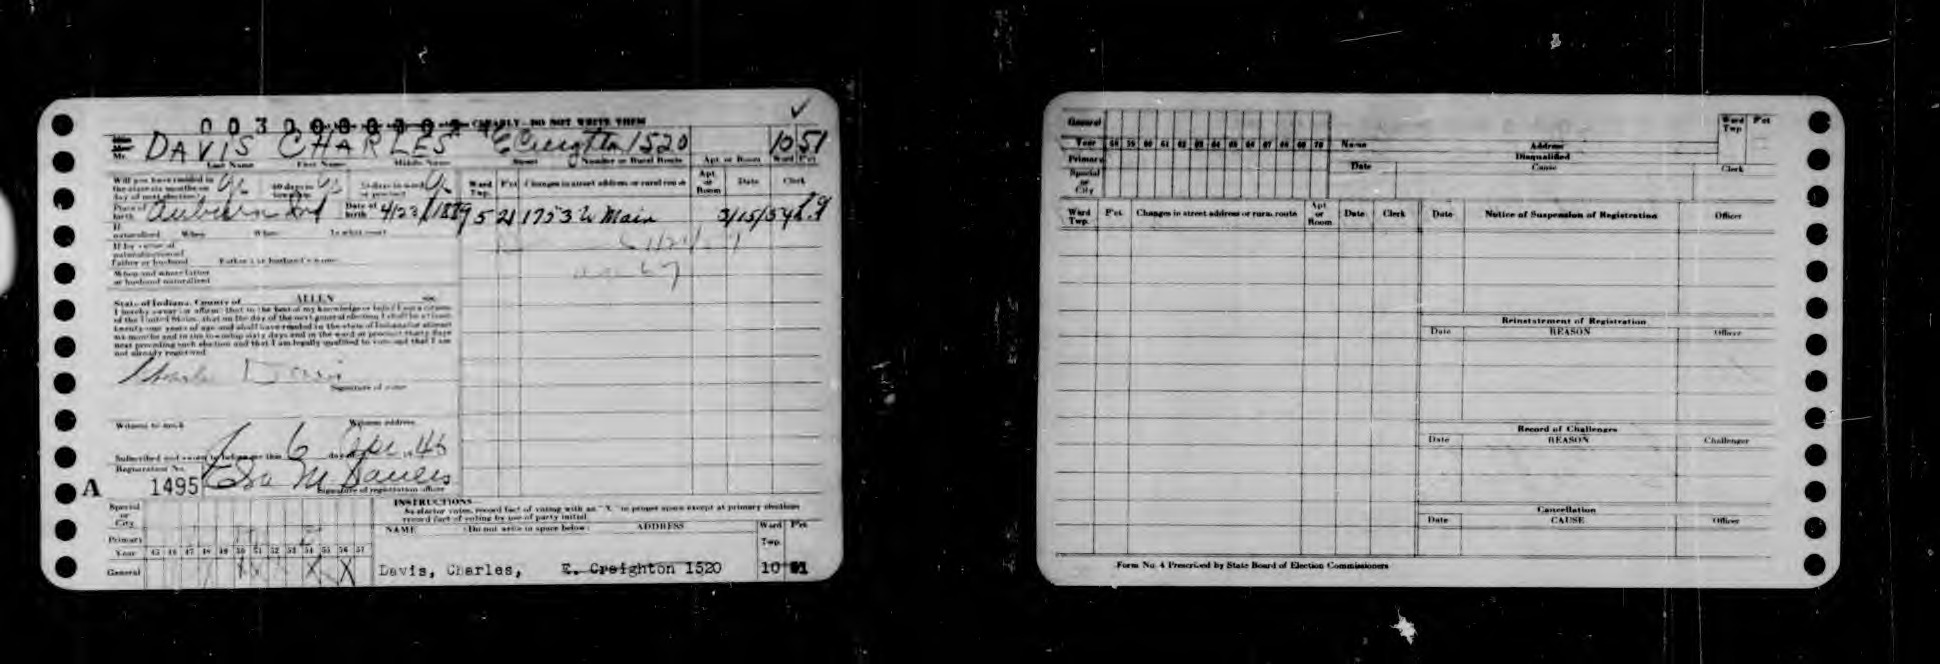 0030000302 CLEARLY - DO NOT WRITE THEM
Mr. DAVIS CHARLES E Creighton 1520 10 51
Last Name First Name Middle Name Street Number or Rural Route Apt. or Room Ward P'ct
Will you have resided in the state six months on day of next election? Yes 60 days in township Yes 30 days in ward or precinct Yes
Ward Twp. P'ct Changes in street address or rural route Apt. or Room Date Clerk
Place of birth Auburn Ind Date of birth 4/23/1889 5 21 1753 W Main 3/15/54
If naturalized When Where In what court
If by virtue of naturalization of
Father or husband Father's or husband's name
When and where father or husband naturalized
State of Indiana, County of ALLEN ss:
I hereby swear (or affirm) that to the best of my knowledge or belief I am a citizen
of the United States, that on the day of the next general election I shall be at least
twenty-one years of age and shall have resided in the state of Indiana for at least
six months and in the township sixty days and in the ward or precinct thirty days
next preceding such election and that I am legally qualified to vote and that I am
not already registered
Charles Davis
Signature of voter
Witness to mark Witness address
Subscribed and sworn to before me this 6 day of 1946
Registration No.
A 1495
Signature of registration officer
INSTRUCTIONS
As elector votes, record fact of voting with an "X" in proper space except at primary elections
record fact of voting by use of party initial.
Special or City
Primary
Year 45 46 47 48 49 50 51 52 53 54 55 56 57
General X X X
NAME (Do not write in space below) ADDRESS Ward Twp. P'ct
Davis, Charles, E. Creighton 1520 10
General
Year 58 59 60 61 62 63 64 65 66 67 68 69 70
Primary
Special or City
Name Address Ward Twp P'ct
Disqualified
Date Cause Clerk
Ward Twp. P'ct. Changes in street address or rural route Apt. or Room Date Clerk
Date Notice of Suspension of Registration Officer
Reinstatement of Registration
Date REASON Officer
Record of Challenges
Date REASON Challenger
Cancellation
Date CAUSE Officer
Form No. 4 Prescribed by State Board of Election Commissioners